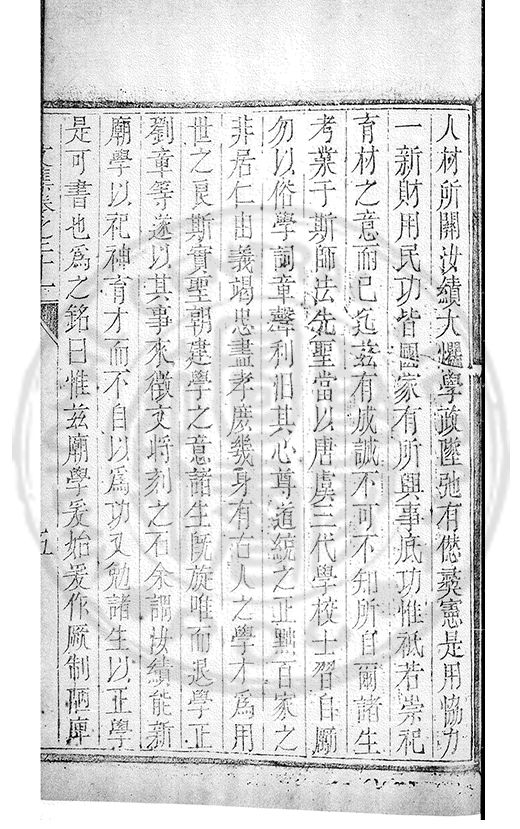 人材所關汝績大懼學政墜弛有愆彛憲是用協力
一新財用民功皆國家有所與事底功惟祗若崇祀
育材之意而已迄兹有成誠不可不知所自爾諸生
考業于斯師法先聖當以唐虞三代學校士習自勵
勿以俗學詞章聲利汨其心尊道統之正黜百家之
非居仁由義竭忠盡孝庶幾身有古人之學才爲用
世之良斯實聖朝建學之意諸生旣旋唯而退學正
劉章等遂以其事來徵文將刻之石余謂汝績能新
廟學以祀神育才而不自以爲功又勉諸生以正學
是可書也爲之銘曰惟兹廟學爰始爰作厥制陋庳
文集卷之二十一
五